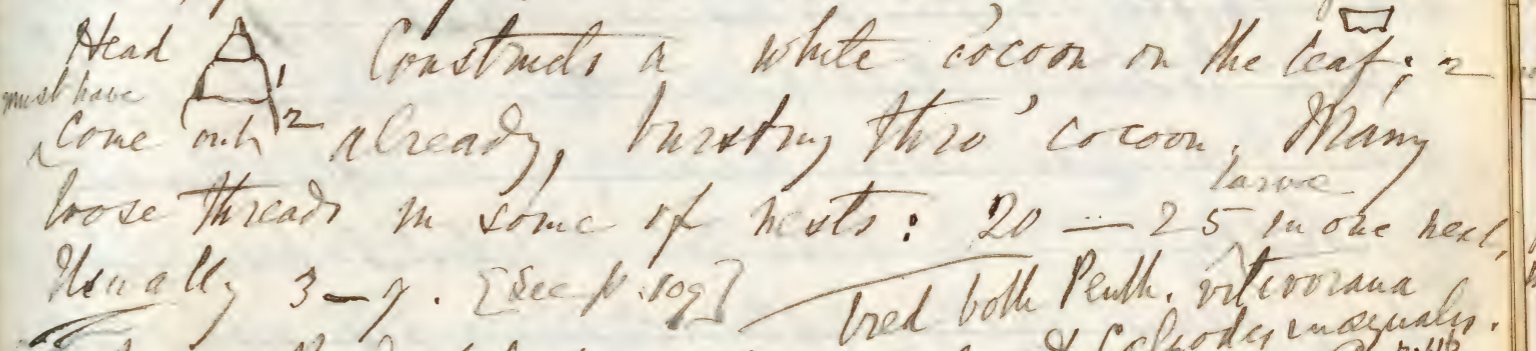 Head 1 2 Constructs a white cocoon on the leaf; 2
must have
come out already, bursting thro' cocoon. Many
loose threads in some of nests: 20 — 25 larvae in one nest.
Usually 3 — 7. [See p. 109] bred both Penth. vitivorana
& inaequalis.